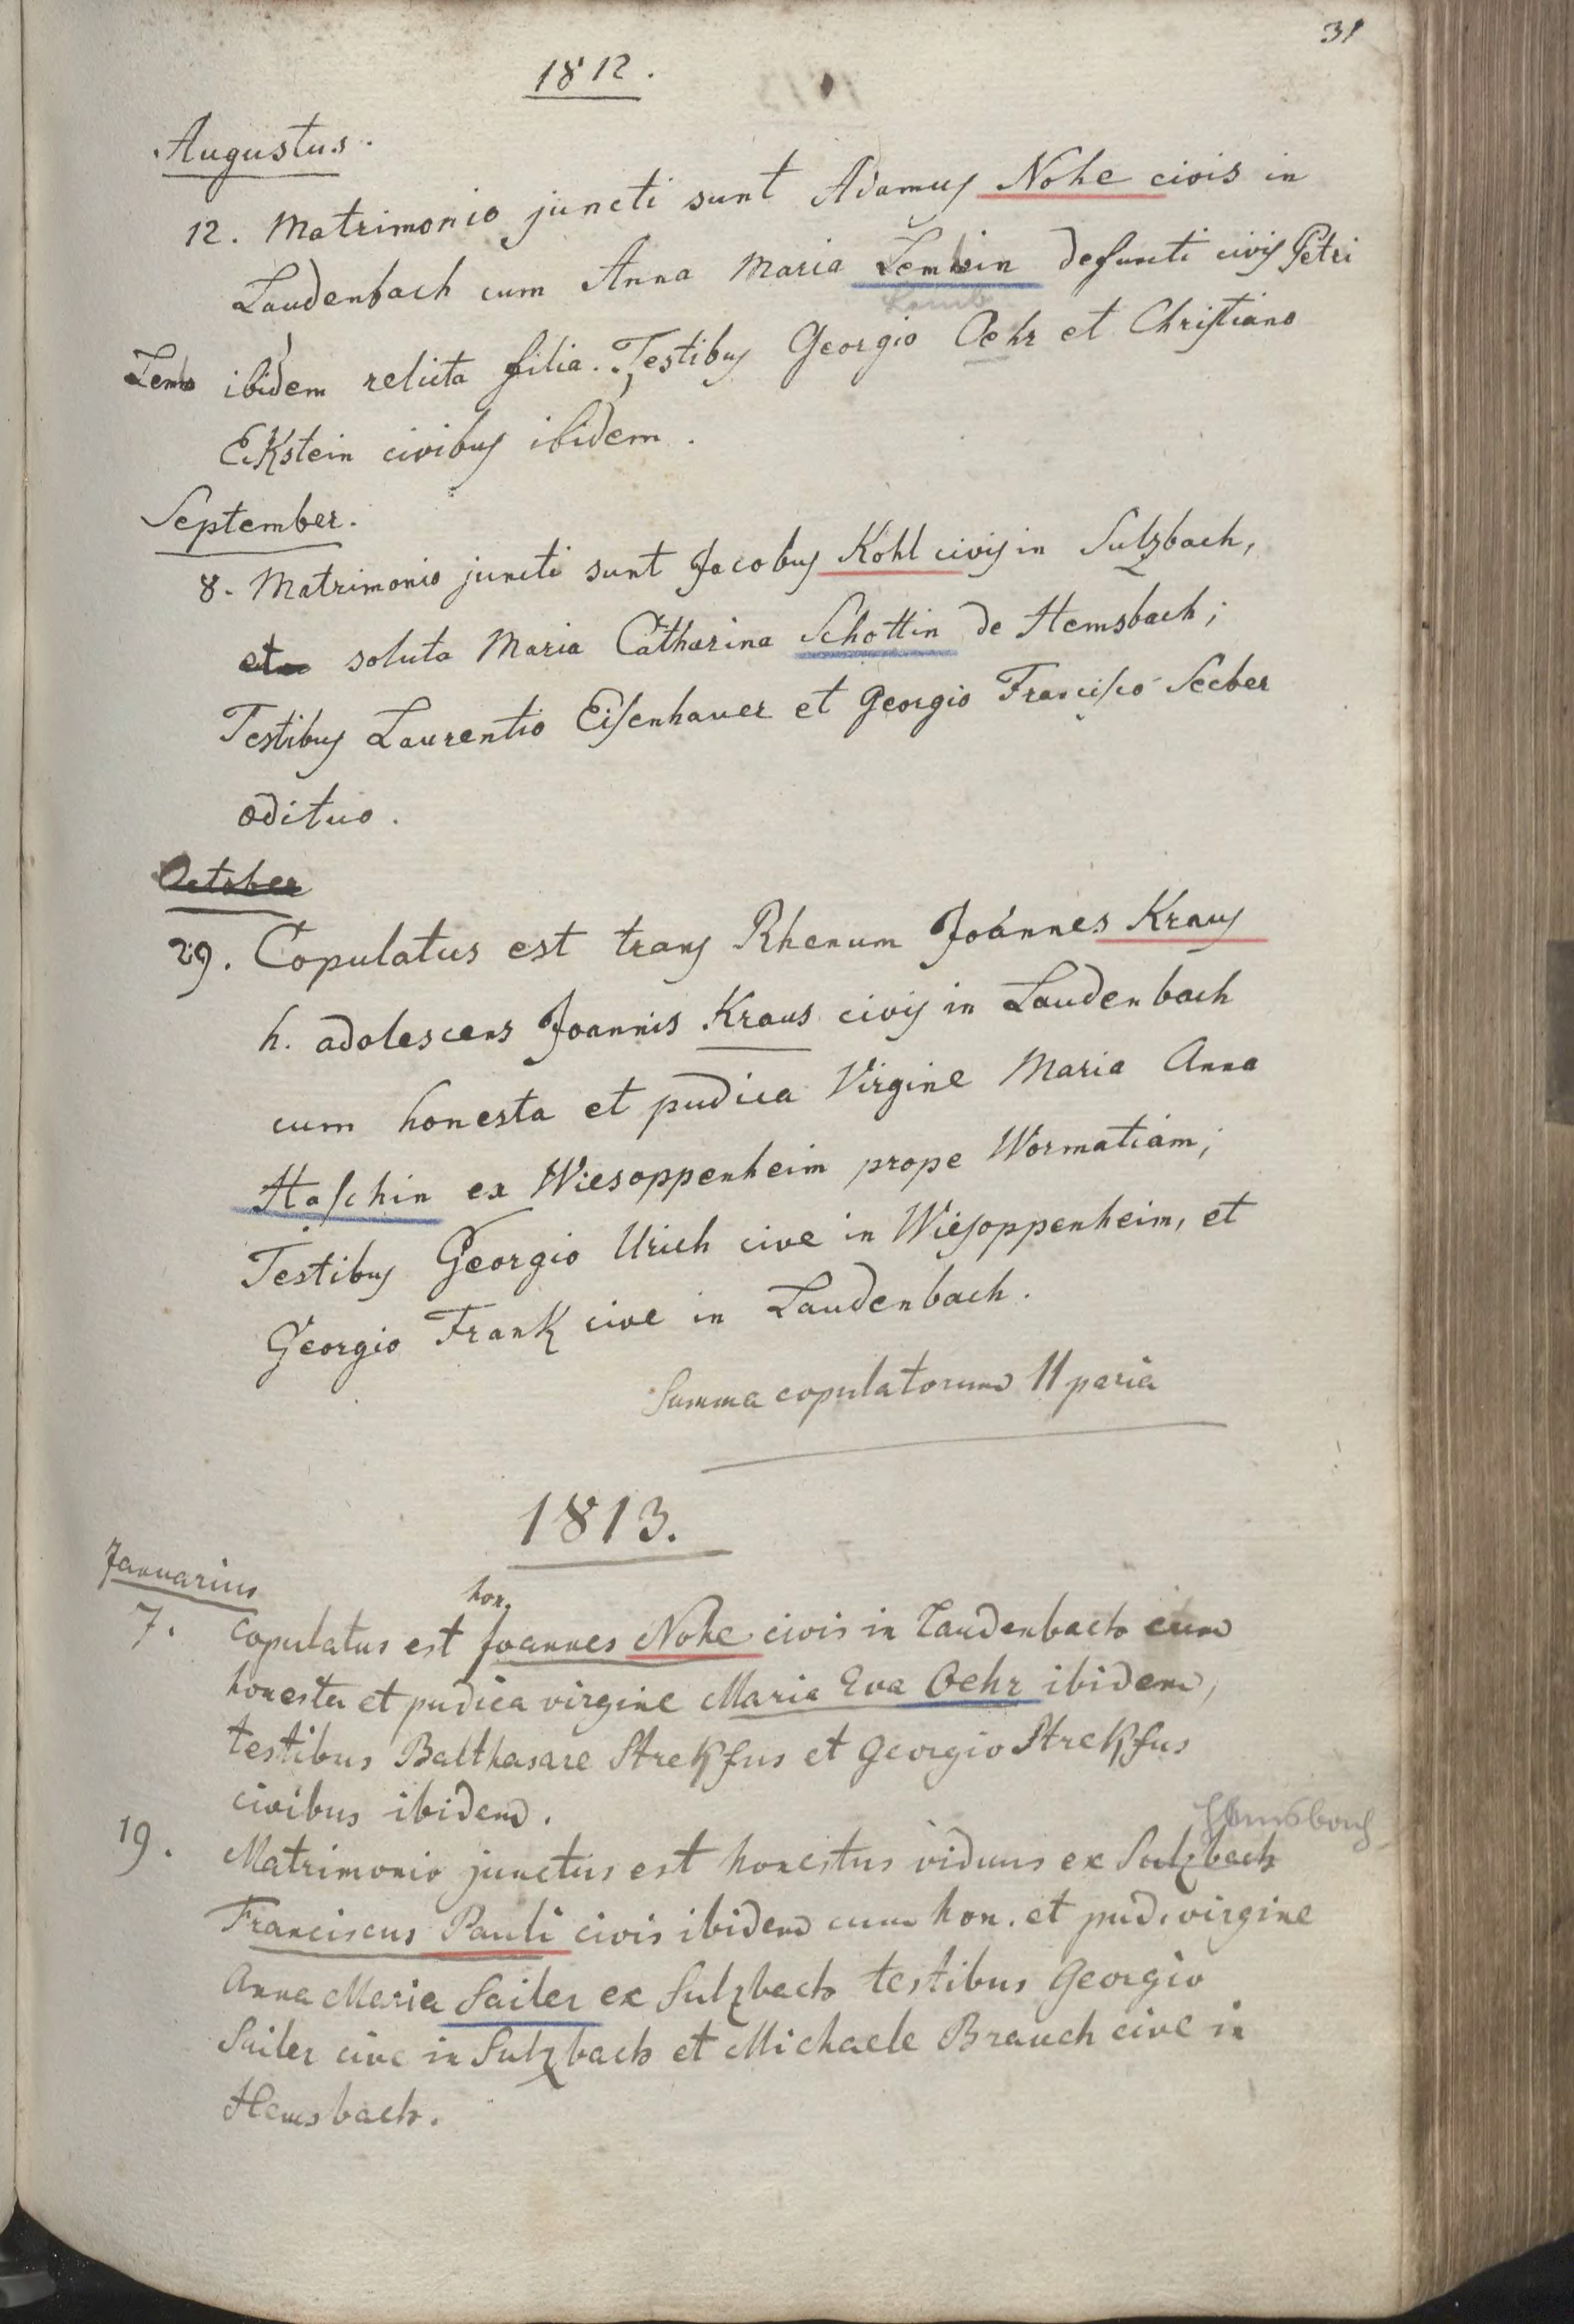 31
1812.
Augustus.
12. Matrimonio juncti sunt Adamus Nohe civis in
Laudenbach cum Anna Maria Lembin defuncti civis Petri
Lamb
Lemb ibidem relicta filia. Testibus Georgio Oehr et Christiano
Ekstein civibus ibidem.
September.
8. Matrimonio juncti sunt Jacobus Kohl civis in Sulzbach,
et soluta Maria Catharina Schottin de Hemsbach;
Testibus Laurentio Eisenhauer et Georgio Francisco Seeber
ædituo.
October
29. Copulatus est trans Rhenum Joannes Kraus
h. adolescens Joannis Kraus civis in Laudenbach
cum honesta et pudica Virgine Maria Anna
Haschin ex Wiesoppenheim prope Wormatiam;
Testibus Georgio Urich cive in Wiesoppenheim, et
Georgio Frank cive in Laudenbach.
Summa copulatorum 11 paria
1813.
Januarius
hon.
7. Copulatus est Joannes Nohe civis in Laudenbach cum
honesta et pudica virgine Maria Eva Oehr ibidem,
testibus Balthasare Strekfus et Georgio Strekfus
civibus ibidem.
Hemsbach
19. Matrimonio junctus est honestus viduus ex Sulzbach
Franciscus Pauli civis ibidem cum hon. et pud. virgine
Anna Maria Sailer ex Sulzbach testibus Georgio
Sailer cive in Sulzbach et Michaele Brauch cive in
Hemsbach.